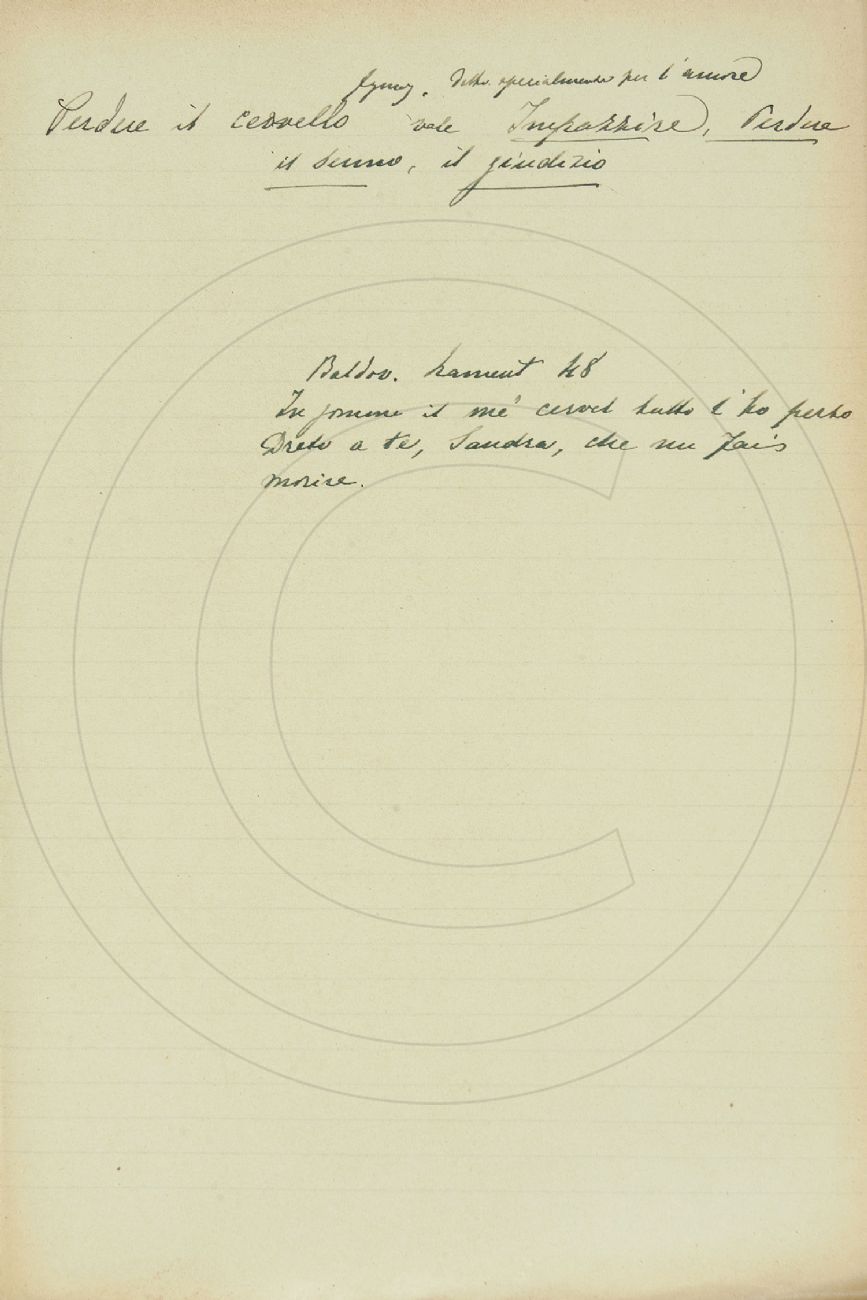 figur. Detto specialmente per l'amore
Perdere il cervello vale Impazzire, Perdere
il senno, il giudizio
Baldov. Lament 48
In fommi il mé cervel tutto l'ho perso
Dreto a te, Sandra, che mi fais
morire.